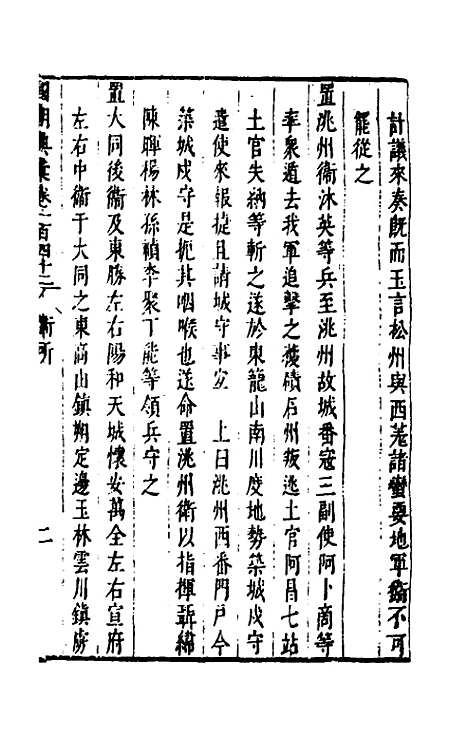 計議來奏既而玉言松州與西羌諸蠻要地軍衞不可
罷從之
置洮州衞沐英等兵至洮州故城番寇三副使阿卜商等
率衆遁去我軍追擊之獲磧石州叛逃土官阿昌七站
土官失納等斬之遂於東籠山南川度地勢築城戍守
遣使來報捷且請城守事宜　上曰洮州西番門戶今
築城戍守是扼其咽喉也遂命置洮州衞以指揮聶緯
陳暉楊林孫禎李聚丁能等領兵守之
置大同後衞及東勝左右陽和天城懷安萬全左右宣府
左右中衞于大同之東高山鎮朔定邊玉林雲川鎮虜
國朝典彙卷之百四十二　衞所　二